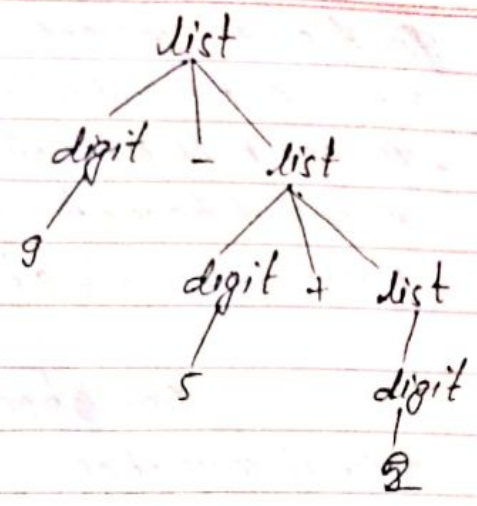 list
digit - list
9
digit + list
5
digit
2